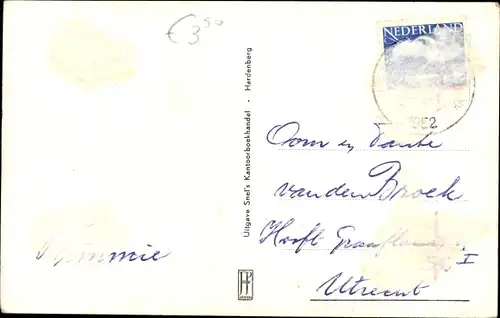 €3 50
NEDERLAND
1952
Oom en Tante
van den Broek
Hooft
I
Utrecht
Uitgave Snel's Kantoorboekhandel - Hardenberg